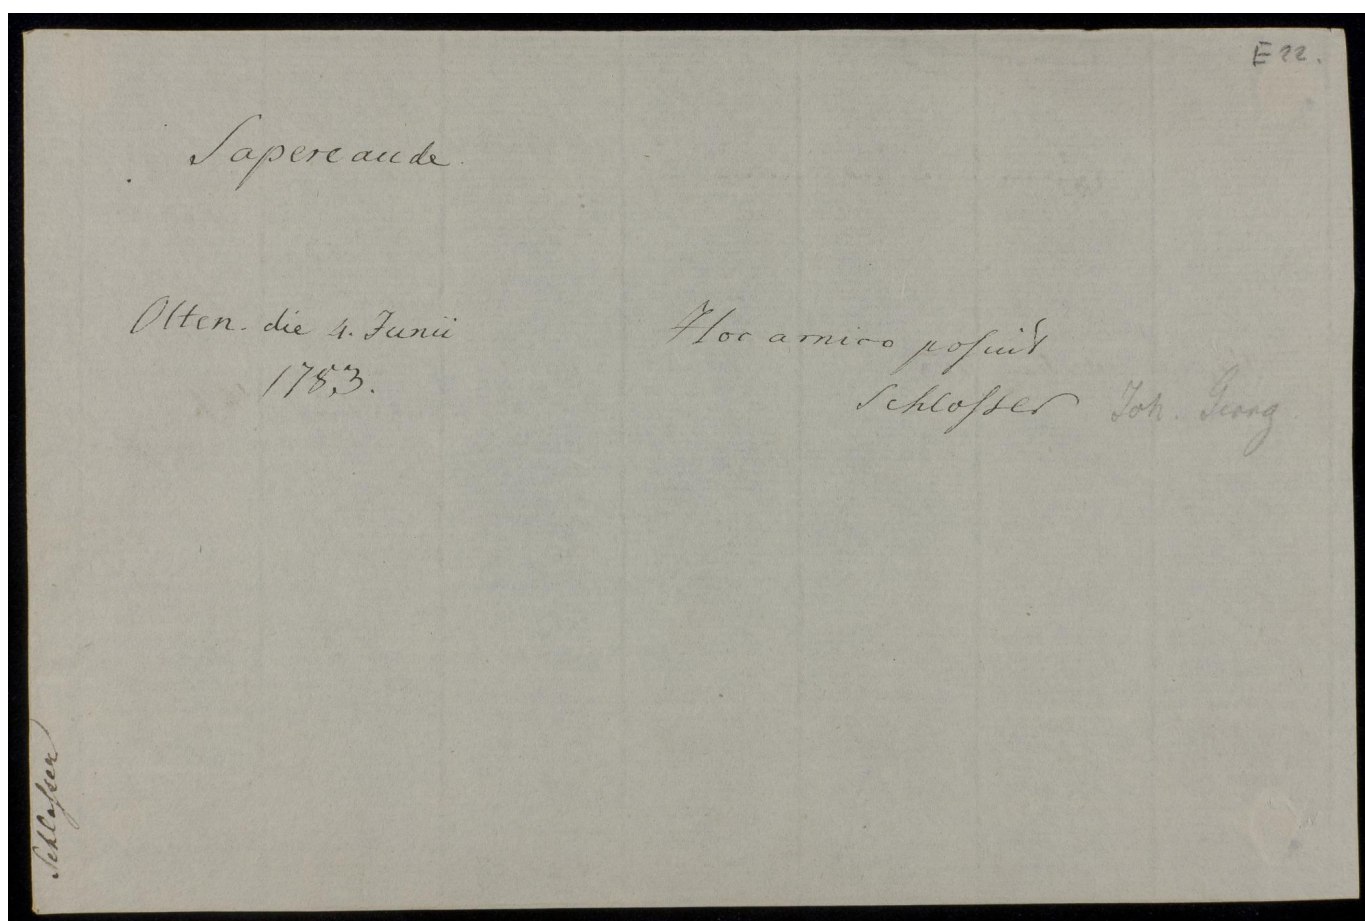 E 22.
Sapere aude.
Olten. die 4. Junii
1783.
Hoc amico posuit
Schlosser Joh. Georg
Schlosser